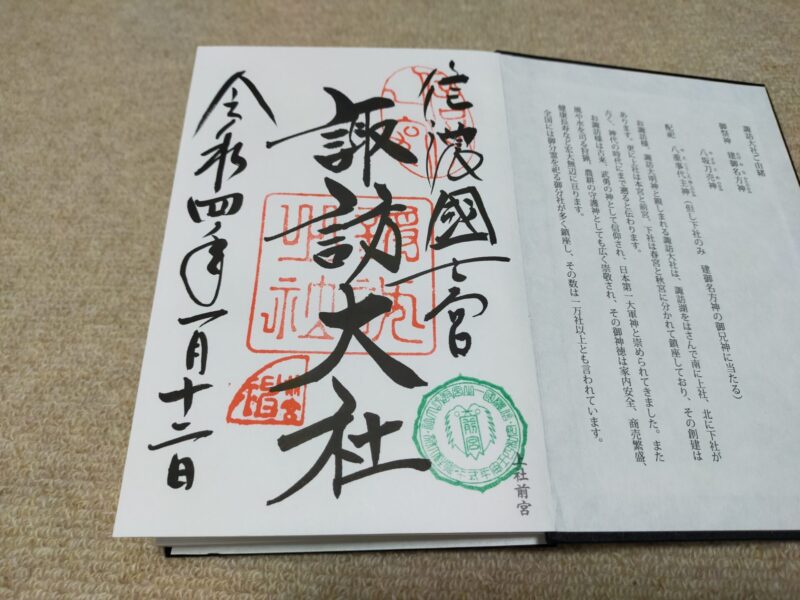 諏訪大社ご由緒
御祭神 建御名方神
八坂刀売神
配祀 八重事代主神(但し下社のみ 建御名方神の御兄神に当たる)
お諏訪様、諏訪大明神と親しまれる諏訪大社は、諏訪湖をはさんで南に上社、北に下社が
あります。更に上社は本宮と前宮、下社は春宮と秋宮に分かれて鎮座しており、その創建は
古く、神代の時代にまで遡ると伝わります。
お諏訪様は古来、武勇の神として信仰され、日本第一大軍神と崇められてきました。また
風や水を司る狩猟、農耕の守護神としても広く崇敬され、その御神徳は家内安全、商売繁盛、
健康長寿など広大無辺に亘ります。
全国には御分霊を祀る御分社が多く鎮座し、その数は一万社以上とも言われています。
信濃國一宮
諏訪大社
令和四年一月十二日
上社前宮
前宮